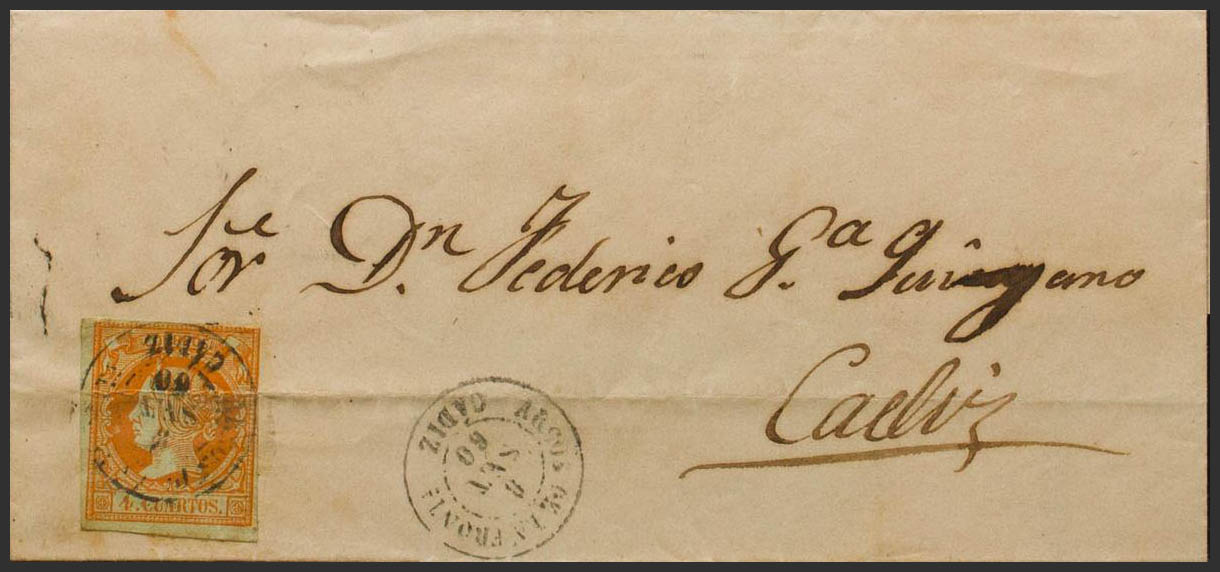 Sor.e Dn. Federico G.a Quijano
Cadiz
4. CUARTOS.
CADIZ
60
ARCOS DE LA FRONTE
CADIZ
8
60